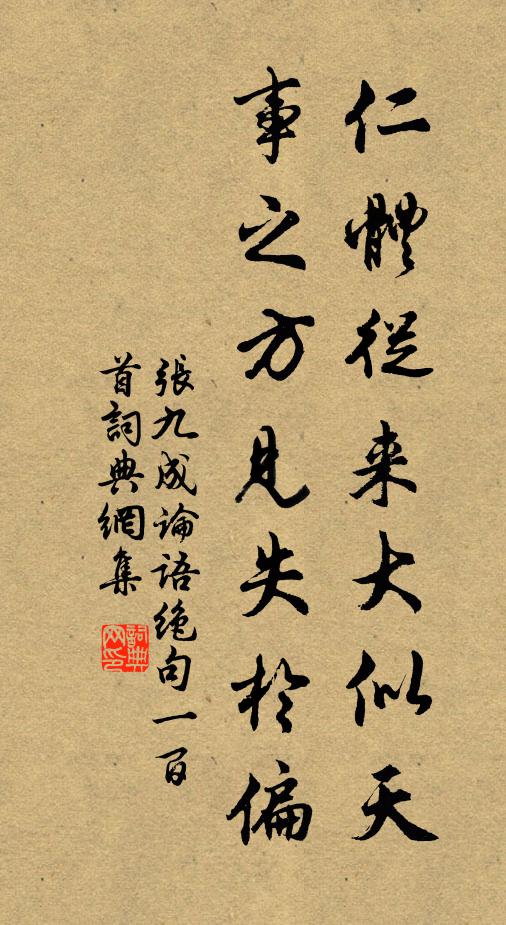 仁體從来大似天
事之方見失於偏
張九成論語绝句一百
首詞典網集
詞典
网印